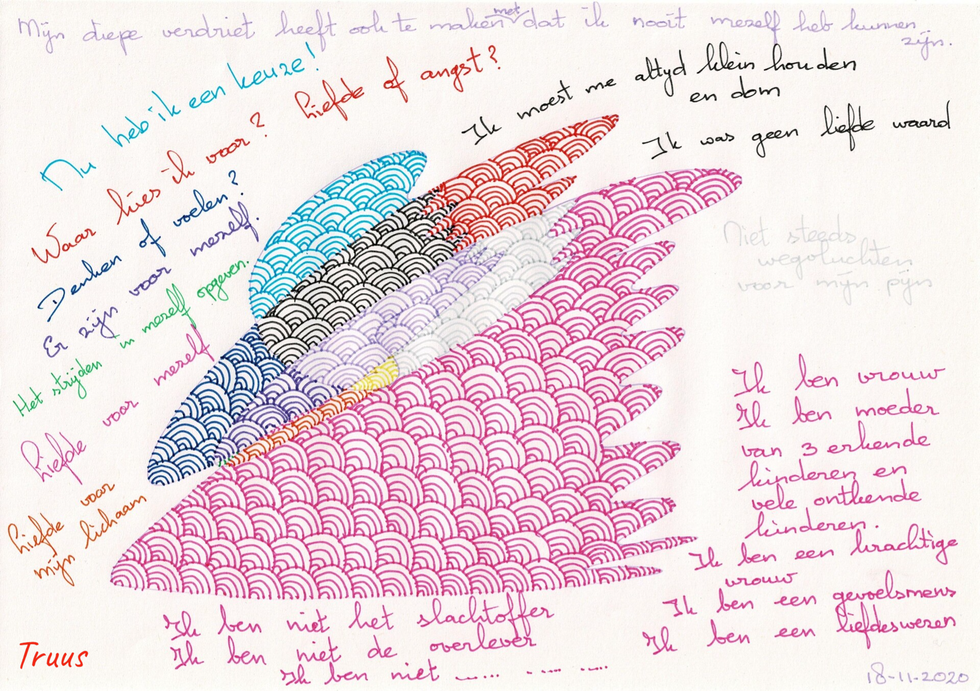 Mijn diepe verdriet heeft ook te maken met dat ik nooit mezelf heb kunnen
zijn.
Nu heb ik een keuze!
Waar kies ik voor? Liefde of angst?
Denken of voelen?
Er zijn voor mezelf.
Het strijden in mezelf opgeven.
Liefde voor mezelf
Liefde voor
mijn lichaam
Ik moest me altyd klein houden
en dom
Ik was geen liefde waard
Niet steeds
wegvluchten
voor mijn pijn
Ik ben vrouw
Ik ben moeder
van 3 erkende
kinderen en
vele ontkende
kinderen.
Ik ben een krachtige
vrouw
Ik ben een gevoelsmens
Ik ben een liefdeswezen
Ik ben niet het slachtoffer
Ik ben niet de overlever
Ik ben niet ...... ...... ......
Truus
18-11-2020